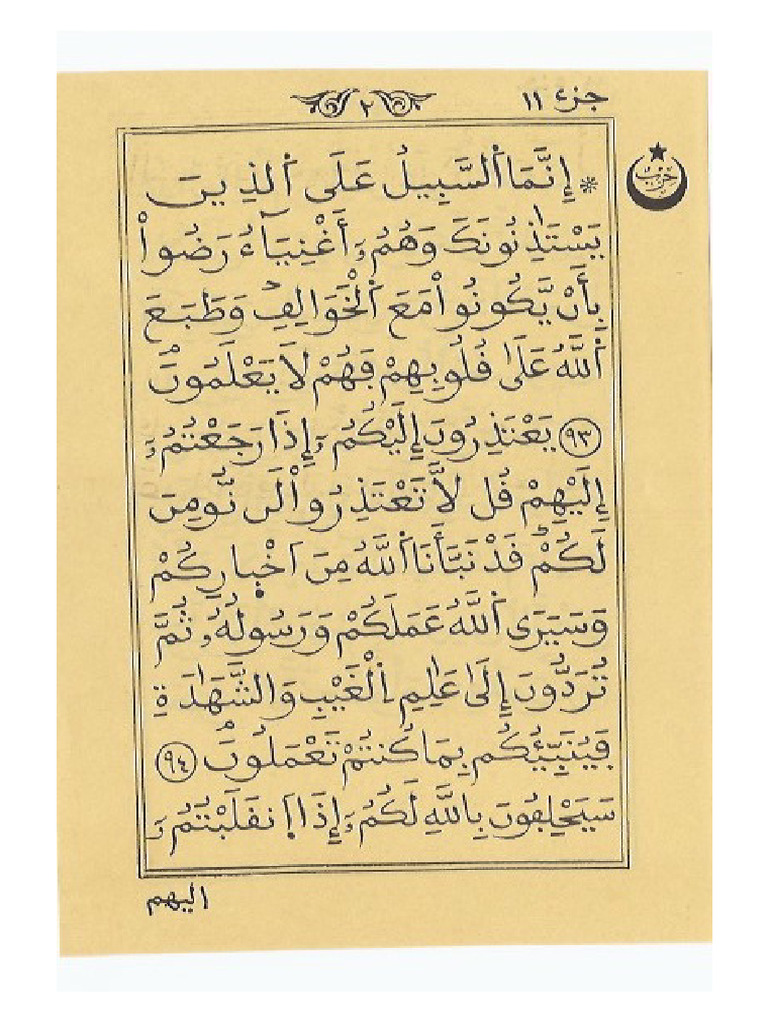 جزء ١١
٢
حزب
۞ إِنَّمَا اَ۬لسَّبِيلُ عَلَى اَ۬لذِينَ
يَسْتَٰذِنُونَكَ وَهُمُۥٓ أَغْنِيَآءُ رَضُواْ
بِأَنْ يَّكُونُواْ مَعَ اَ۬لْخَوَالِفِ وَطَبَعَ
اَ۬للَّهُ عَلَىٰ قُلُوبِهِمْ فَهُمْ لَا يَعْلَمُونَ
٩٣ يَعْتَذِرُونَ إِلَيْكُمُۥٓ إِذَا رَجَعْتُمُۥٓ
إِلَيْهِمْ قُل لَّا تَعْتَذِرُواْ لَن نُّومِنَ
لَكُمْ قَدْ نَبَّأَنَا اَ۬للَّهُ مِنَ اَخْبارِكُمْ
وَسَيَرَى اَ۬للَّهُ عَمَلَكُمْ وَرَسُولُهُۥ ثُمَّ
تُرَدُّونَ إِلَىٰ عَٰلِمِ اِ۬لْغَيْبِ وَالشَّهَٰدَةِ
فَيُنَبِّئُكُم بِمَا كُنتُمْ تَعْمَلُونَ ٩٤
سَيَحْلِفُونَ بِاللَّهِ لَكُمُۥٓ إِذَا اَ۪نقَلَبْتُمُۥٓ
اليهم